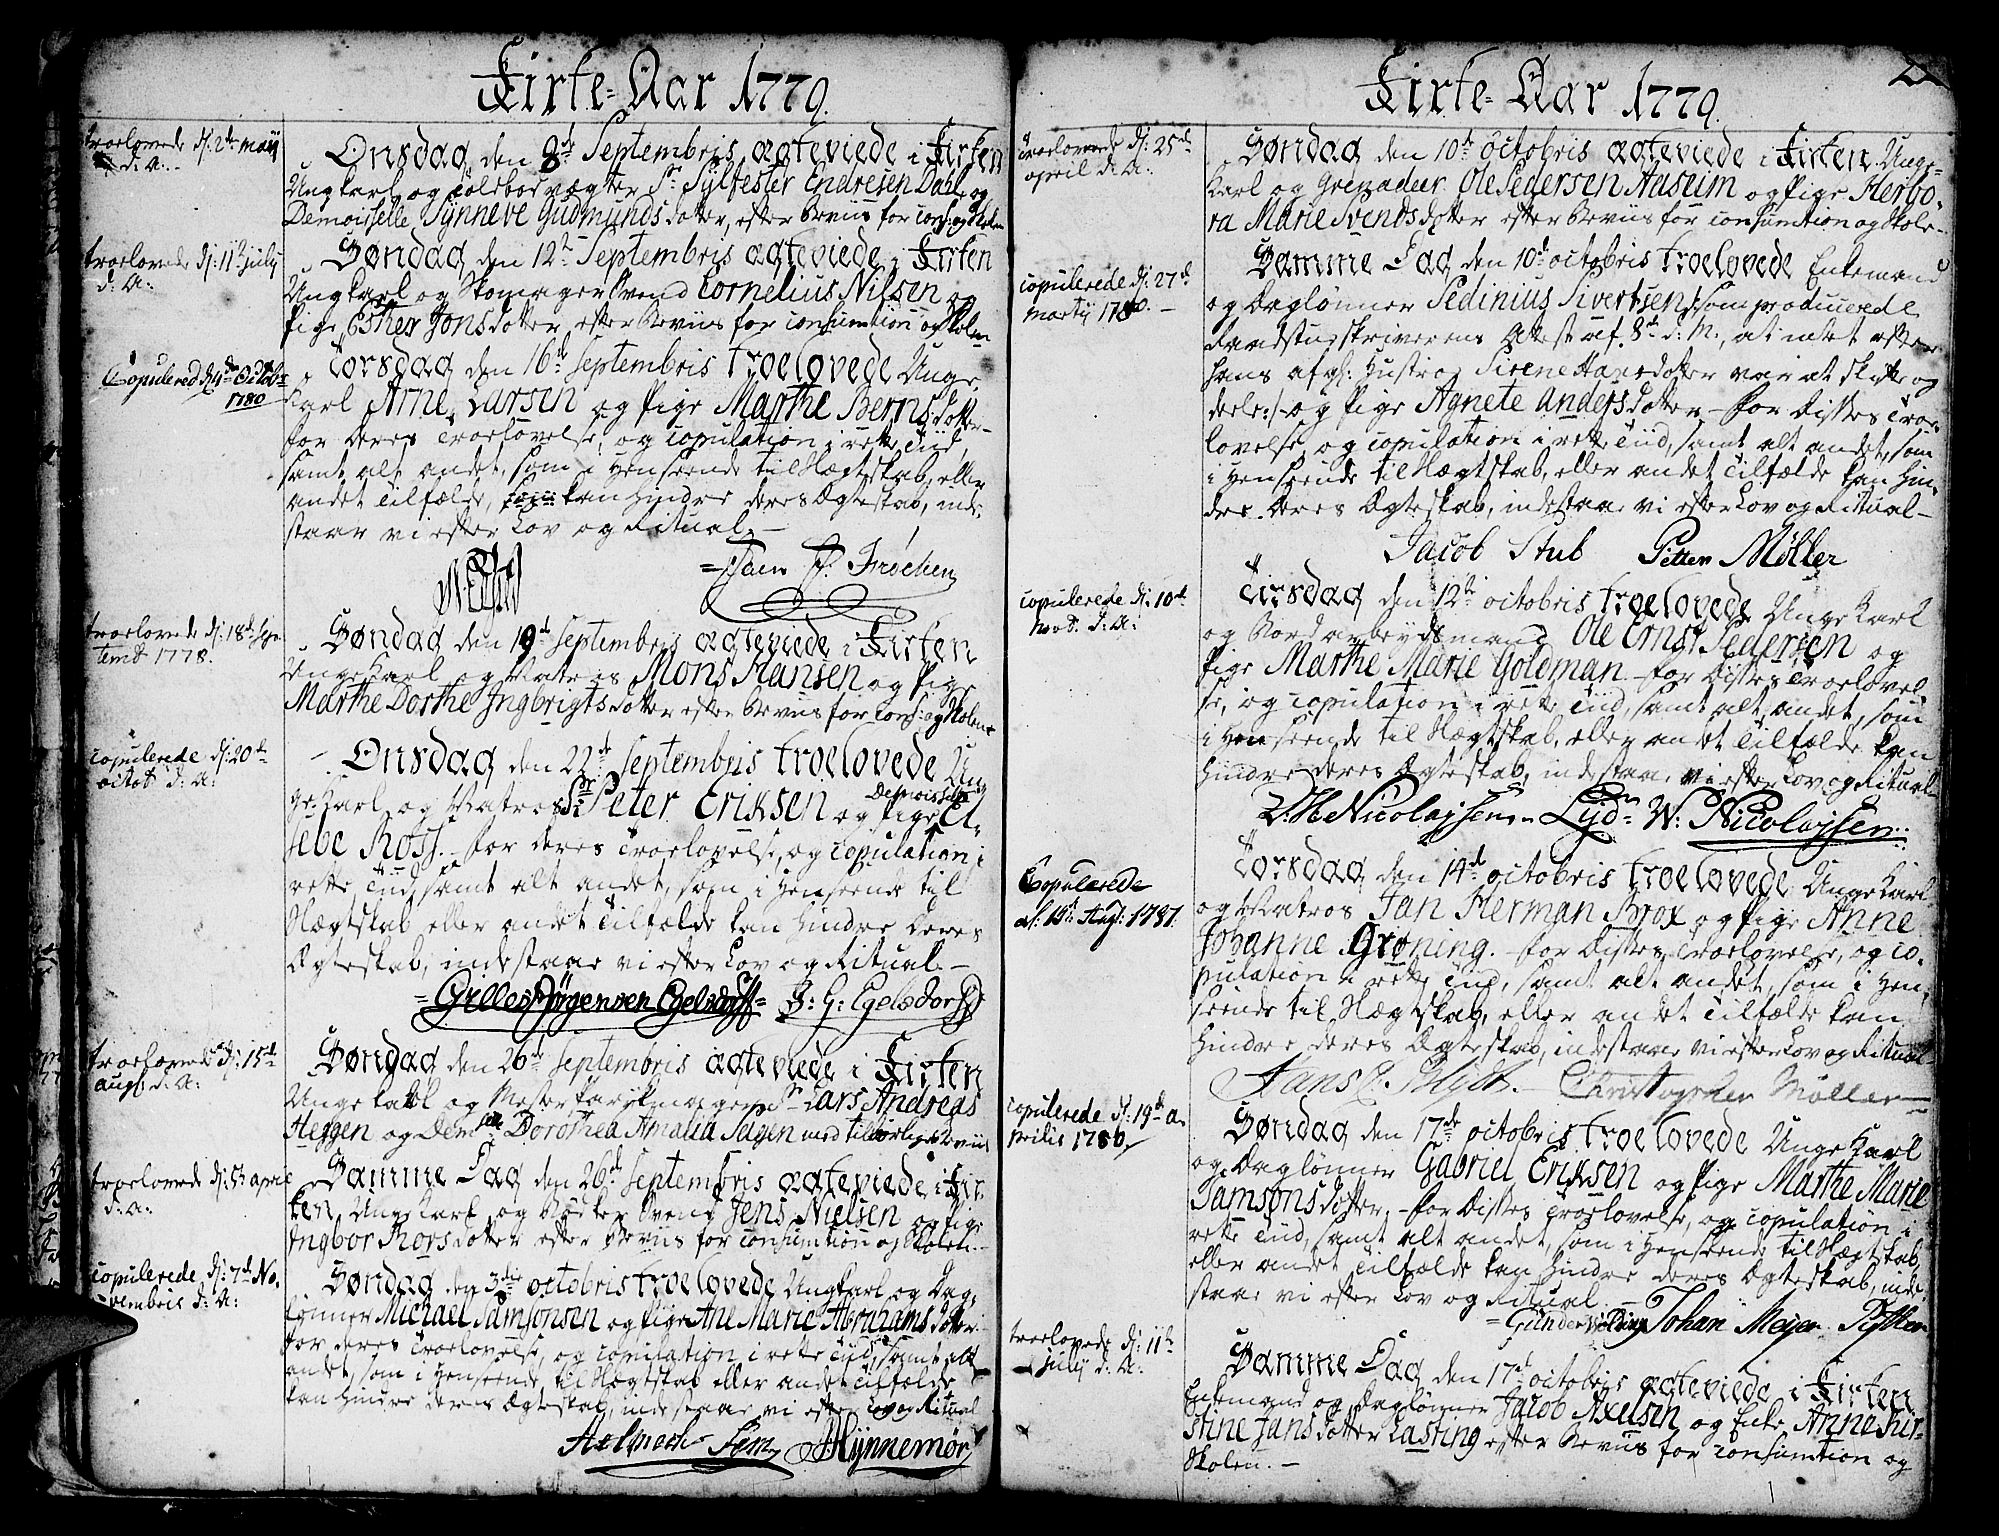 Kirke-Aar 1779.
troelovede d: 2de maij
d: A:
Onsdag den 8de Septembris ægteviede i Kirken
Ungkarl og Toldbodvægter Sr Sylfester Endresen Dahl og
Demoiselle Synneve Gudmundsdotter, efter Beviis for cons: og Skolen
troelovede d: 11te july
d: A:
Søndag den 12te Septembris ægteviede i Kirken
Ungkarl og Skomager Svend Cornelius Nilsen og
Pige Esther Jonsdotter efter Beviis for consumtion og Skolen
Copulered d 4de Octobr
1780
Torsdag den 16de Septembris troelovede Unge
Karl Arne Larsen og Pige Marthe Berns dotter
for deres Troelovelse, og copulation i rette Tiid,
samt alt andet, som i Henseende til Slægtskab, eller
andet Tilfælde, kan Hindre deres Ægteskab, inde
staar vi efter Lov og Ritual. -
troelovede d: 18de Sep
temb 1778.
Søndag den 19de Septembris ægteviede i Kirken
Unge Karl og Matros Mons Hansen og Pige
Marthe Dorthe Ingbrigtsdotter efter Beviis for cons: og Skolen
copulerede d: 20de
octob d: A:
Onsdag den 22de Septembris troelovede Un
ge Karl og Matros Sr Peter Eriksen og Pige Demoiselle El
sebe Ross. - for deres Troelovelse, og copulation i
rette Tiid, samt alt andet, som i Henseende til
Slægtskab eller andet Tilfælde kan Hindre deres
Ægteskab, indestaae vi efter Lov og Ritual. -
Gilles Jørgensen Egelsdorff J: G: Egelsdorff
troelovede d: 15de
augs d: A:
Søndag den 26de Septembris ægteviede i Kirken
Unge Karl og Mester Parykmager Sr Lars Andreas
Heggen og Demlle Dorothea Amalia Sagen med tilbørlige Beviis
troelovede d: 5te april
d: A:
Samme Dag den 26de Septembris ægteviede i Kir
ken Unge Karl og Bødker Svend Jens Nielsen og Pige
Ingbor Korsdotter efter Beviis for consumtion og Skolen. -
copulerede d: 7de No
vembris d: A:
Søndag den 3die octobris troelovede Ungkarl og Dag
lønner Michael Samsonsen og Pige Ane Marie Abrahamsdotter
for deres Troelovelse, og copulation i rette Tiid, samt alt
andet, som i Henseende til Slægtskab eller andet Tilfælde
kan Hindre deres Ægteskab, indestaae vi efter Lov og Ritual
Kirke-Aar 1779.
troelovede d: 25de
april d: A:
Søndag den 10de octobris ægteviede i Kirken Unge
Karl og Grenadeer Ole Pedersen Aaseim og Pige Herbo
ra Marie Svendsdotter efter Beviis for consumtion og Skole
copulerede d: 27de
martij 1780. -
Samme Dag den 10de octobris troelovede Enkemand
og Daglønner Pedinius Sivertsen /: som producerede
Raadstueskriverens Attest af 8de d: M:, at intet efter
hans afg: Hustroe Sirene Hansdotter var at skifte og
deele :/ og Pige Agnete Andersdotter - for Disses Troe
lovelse, og copulation i rette Tiid, samt alt andet, som
i Henseende til Slægtskab, eller andet Tilfælde kan Hin
dre deres Ægteskab, indestaae vi efter Lov og Ritual -
Jacob Stub Petter Møller
copulerede d: 10de
nov. d: A:
Tirsdag den 12te octobris troelovede Unge Karl
og Nordarbeydsmand Ole Ernst Pedersen og
Pige Marthe Marie Goldman - for Disses Troelovel
se, og copulation i rette Tiid, samt alt andet, som
i Henseende til Slægtskab, eller andet Tilfælde kan
Hindre deres Ægteskab, indestaae vi efter Lov og Rituall
Nicolaysen Lyd W: Nicolaysen
Copulerede
d. 14de Aug: 1781.
Torsdag den 14de octobris troelovede Unge Karl
og Matros Jan Herman Brox og Pige Anne
Johanne Grøning. - for Disses Troelovelse, og co
pulation i rette Tiid, samt alt andet, som i Hen
seende til Slægtskab, eller andet Tilfælde kan
Hindre deres Ægteskab, indestaae vi efter Lov og Ritual
Hans C. Blydt. Christopher Møller
copulerede d: 19de a
prilis 1786
Søndag den 17de octobris troelovede Unge Karl
og Daglønner Gabriel Eriksen og Pige Marthe Marie
Samsonsdotter. - for Disses Troelovelse, og copulation i
rette Tiid, samt alt andet, som i Henseende til Slægtskab,
eller andet Tilfælde kan Hindre deres Ægteskab, inde
staae vi efter Lov og Ritual
Johan Meyer
troelovede d: 11te
july d: A:
Samme Dag den 17de octobris ægteviede i Kirken
Enkemand og Daglønner Jacob Axelsen og Enke Anne Kir
stine Jansdotter Lasting efter Beviis for consumtion og
Skolen. -